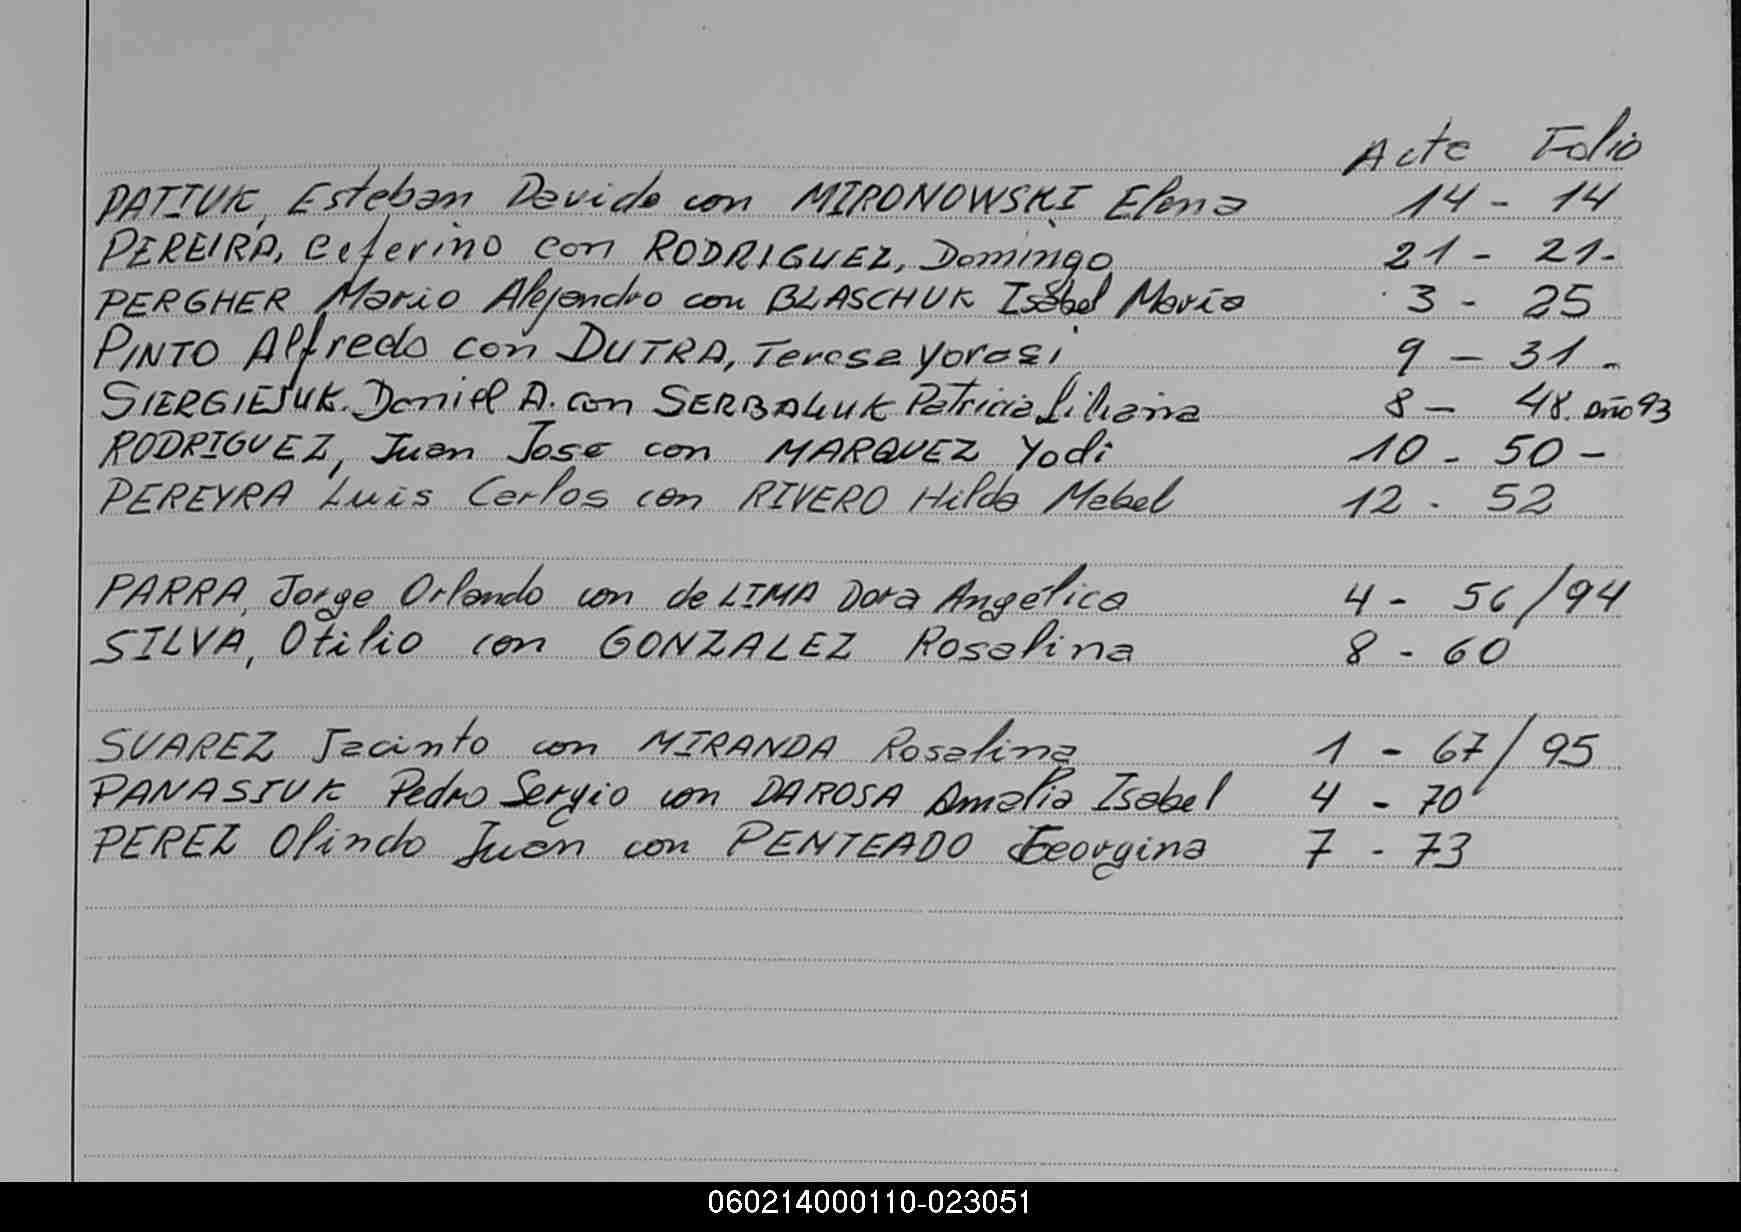 Acta Folio
PATIUK, Esteban Davido con MIRONOWSKI Elena 14 - 14
PEREIRA, Ceferino con RODRIGUEZ, Dominga 21 - 21-
PERGHER Mario Alejandro con BLASCHUK Isabel Maria 3 - 25
PINTO Alfredo con DUTRA, Teresa Yorasi 9 - 31 -
SIERGIEJUK. Daniel A. con SERBALUK Patricia Liliana 8 - 48. año 93
RODRIGUEZ, Juan Jose con MARQUEZ Yodi 10 - 50 -
PEREYRA Luis Carlos con RIVERO Hilda Mabel 12 - 52
PARRA, Jorge Orlando con de LIMA Dora Angélica 4 - 56/94
SILVA, Otilio con GONZALEZ Rosalina 8 - 60
SUAREZ Jacinto con MIRANDA Rosalina 1 - 67/95
PANASIUK Pedro Sergio con DAROSA Amalia Isabel 4 - 70
PEREZ Olindo Juan con PENTEADO Georgina 7 - 73
060214000110-023051